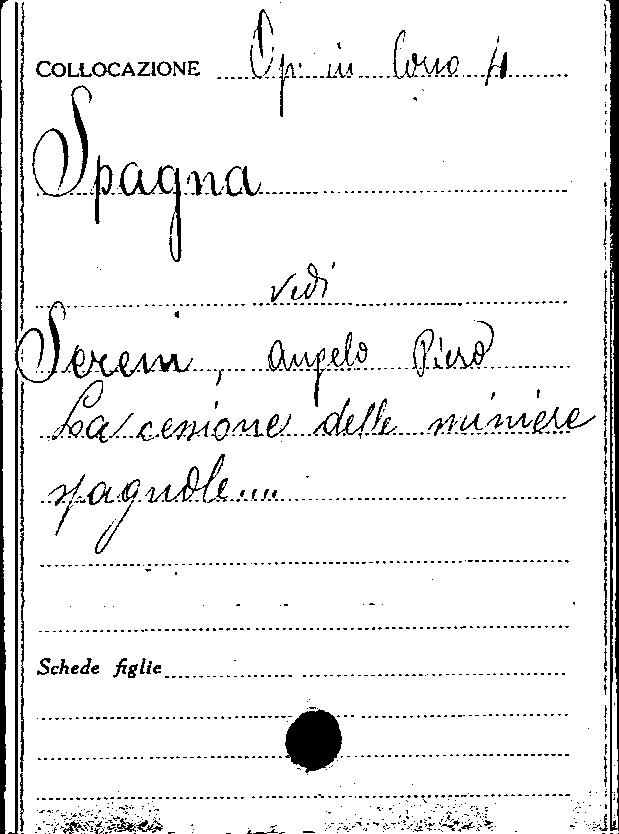 COLLOCAZIONE Op. in Corso 4
Spagna
vedi
Sereni, Angelo Piero
La cessione delle miniere
spagnole....
Schede figlie